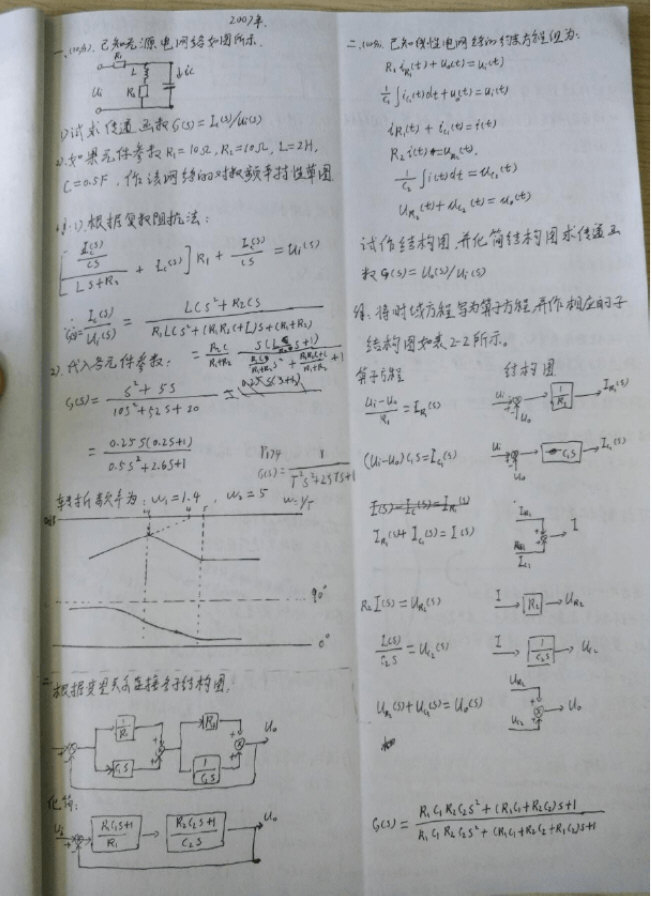 2007年.
一、(10分). 已知无源电网络如图所示.
R₁
L
R₂
ic
Ui
1) 试求传递函数 G(s) = Ic(s)/Ui(s)
2). 如果元件参数 R₁=10Ω, R₂=10Ω, L=2H,
C=0.5F, 作该网络的对数频率特性草图.
解: 1). 根据复数阻抗法:
[(Ic(s)/CS)/(LS+R₂) + Ic(s)] R₁ + Ic(s)/CS = Ui(s)
G(s)= Ic(s)/Ui(s) = (LCS²+R₂CS)/(R₁LCS²+(R₁R₂C+L)S+(R₁+R₂))
2). 代入各元件参数:
G(s) = (S²+5S)/(10S²+52S+20)
= 0.25S(0.2S+1)/(0.5S²+2.6S+1)
G(s)= 1/(T²S²+2ζTS+1)
转折频率为: ω₁=1.4, ω₂=5 ω=1/T
90°
0°
根据变量关系连接各子结构图.
1/R₁
C₁S
R₂
1/C₂S
Uo
化简:
Ui
(R₁C₁S+1)/R₁
(R₂C₂S+1)/C₂S
Uo
二、(10分). 已知线性电网络的约束方程组为:
R₁ i_R₁(t) + uo(t) = ui(t)
1/C₁ ∫i_C₁(t)dt + uo(t) = ui(t)
i_R₁(t) + i_C₁(t) = i(t)
R₂ i(t) = u_R₂(t).
1/C₂ ∫i(t)dt = u_C₂(t)
u_R₂(t) + u_C₂(t) = uo(t)
试作结构图, 并化简结构图求传递函
数 G(s) = Uo(s)/Ui(s)
解. 将时域方程写为算子方程, 并作相应的子
结构图如表2-2所示.
算子方程 结构图
(Ui-Uo)/R₁ = I_R₁(s) Ui Uo 1/R₁ I_R₁(s)
(Ui-Uo)C₁S = I_C₁(s) Ui Uo C₁S I_C₁(s)
I(s)-I_C(s)=I_R₁(s)
I_R₁(s)+I_C₁(s) = I(s) I_R₁ I_C₁ I
R₂I(s) = U_R₂(s) I R₂ U_R₂
I(s)/C₂S = U_C₂(s) I 1/C₂S U_C₂
U_R₂(s)+U_C₂(s) = Uo(s) U_R₂ U_C₂ Uo
G(s) = (R₁C₁R₂C₂S²+(R₁C₁+R₂C₂)S+1)/(R₁C₁R₂C₂S²+(R₁C₁+R₂C₂+R₁C₂)S+1)